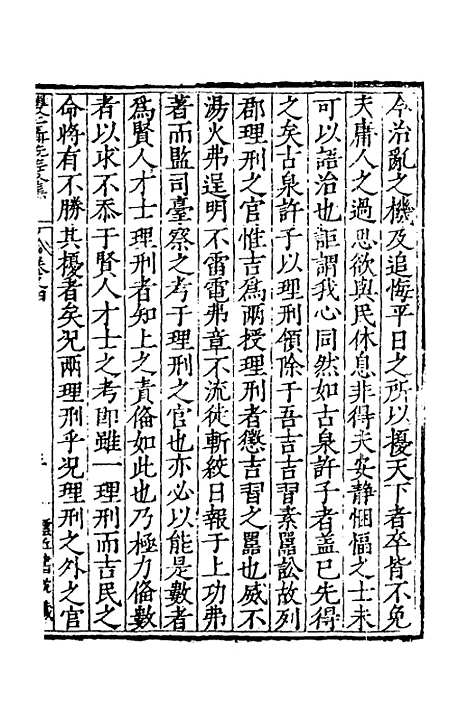 今治亂之機及追悔平日之所以擾天下者卒皆不免
夫庸人之過思欲與民休息非得夫安靜悃愊之士未
可以語治也詎謂我心同然如古泉許子者蓋已先得
之矣古泉許子以理刑領除于吾吉吉習素嚚訟故列
郡理刑之官惟吉爲兩授理刑者懲吉習之嚚也威不
湯火弗逞明不雷電弗章不流徒斬絞日報于上功弗
著而監司臺察之考于理刑之官也亦必以能是數者
爲賢人才士理刑者知上之責俻如此也乃極力俻數
者以求不忝于賢人才士之考即雖一理刑而吉民之
命將有不勝其擾者矣况兩理刑乎况理刑之外之官
卷之四